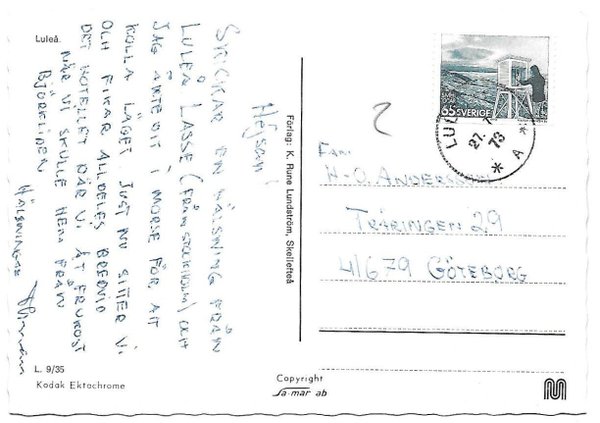 Luleå.
Hejsan!
SKICKAR EN HÄLSNING FRÅN
LULEÅ. LASSE (FRÅN STOCKHOLM) OCH
JAG ÅKTE DIT I MORSE FÖR ATT
KOLLA LÄGET. JUST NU SITTER VI
OCH FIKAR ALLDELES BREDVID
DET HOTELLET DÄR VI ÅT FRUKOST
NÄR VI SKULLE HEM FRÅN
BJÖRKLIDEN
HÄLSNINGAR
L. 9/35
Kodak Ektachrome
Förlag: K. Rune Lundström, Skellefteå
Copyright
sa-mar ab
65 SVERIGE
LUL
27.
73
* A *
FAM
H-O. ANDERSSON
TRÄRINGEN 29
41679 GÖTEBORG